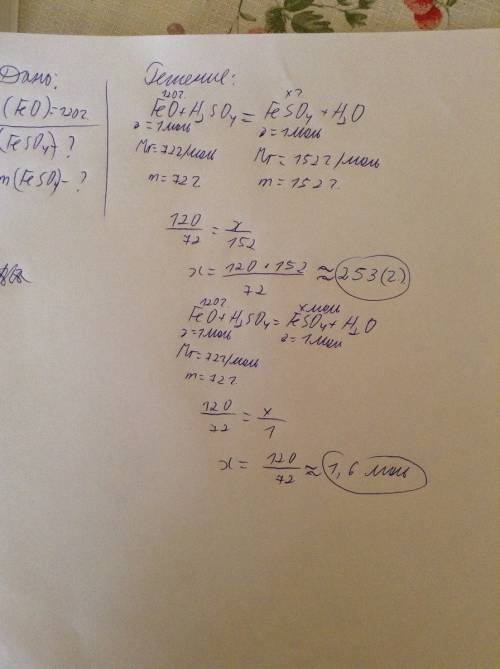 Дано:
(FeO)=120г
(FeSO4)-?
m(FeSO4)-?
Решение:
120г x?
FeO+H2SO4=FeSO4+H2O
ν=1моль ν=1моль
Mr=72г/моль Mr=152г/моль
m=72г m=152г
120/72=x/152
x=120•152/72≈253(г)
120г xмоль
FeO+H2SO4=FeSO4+H2O
ν=1моль ν=1моль
Mr=72г/моль
m=72г
120/72=x/1
x=120/72≈1,6 моль